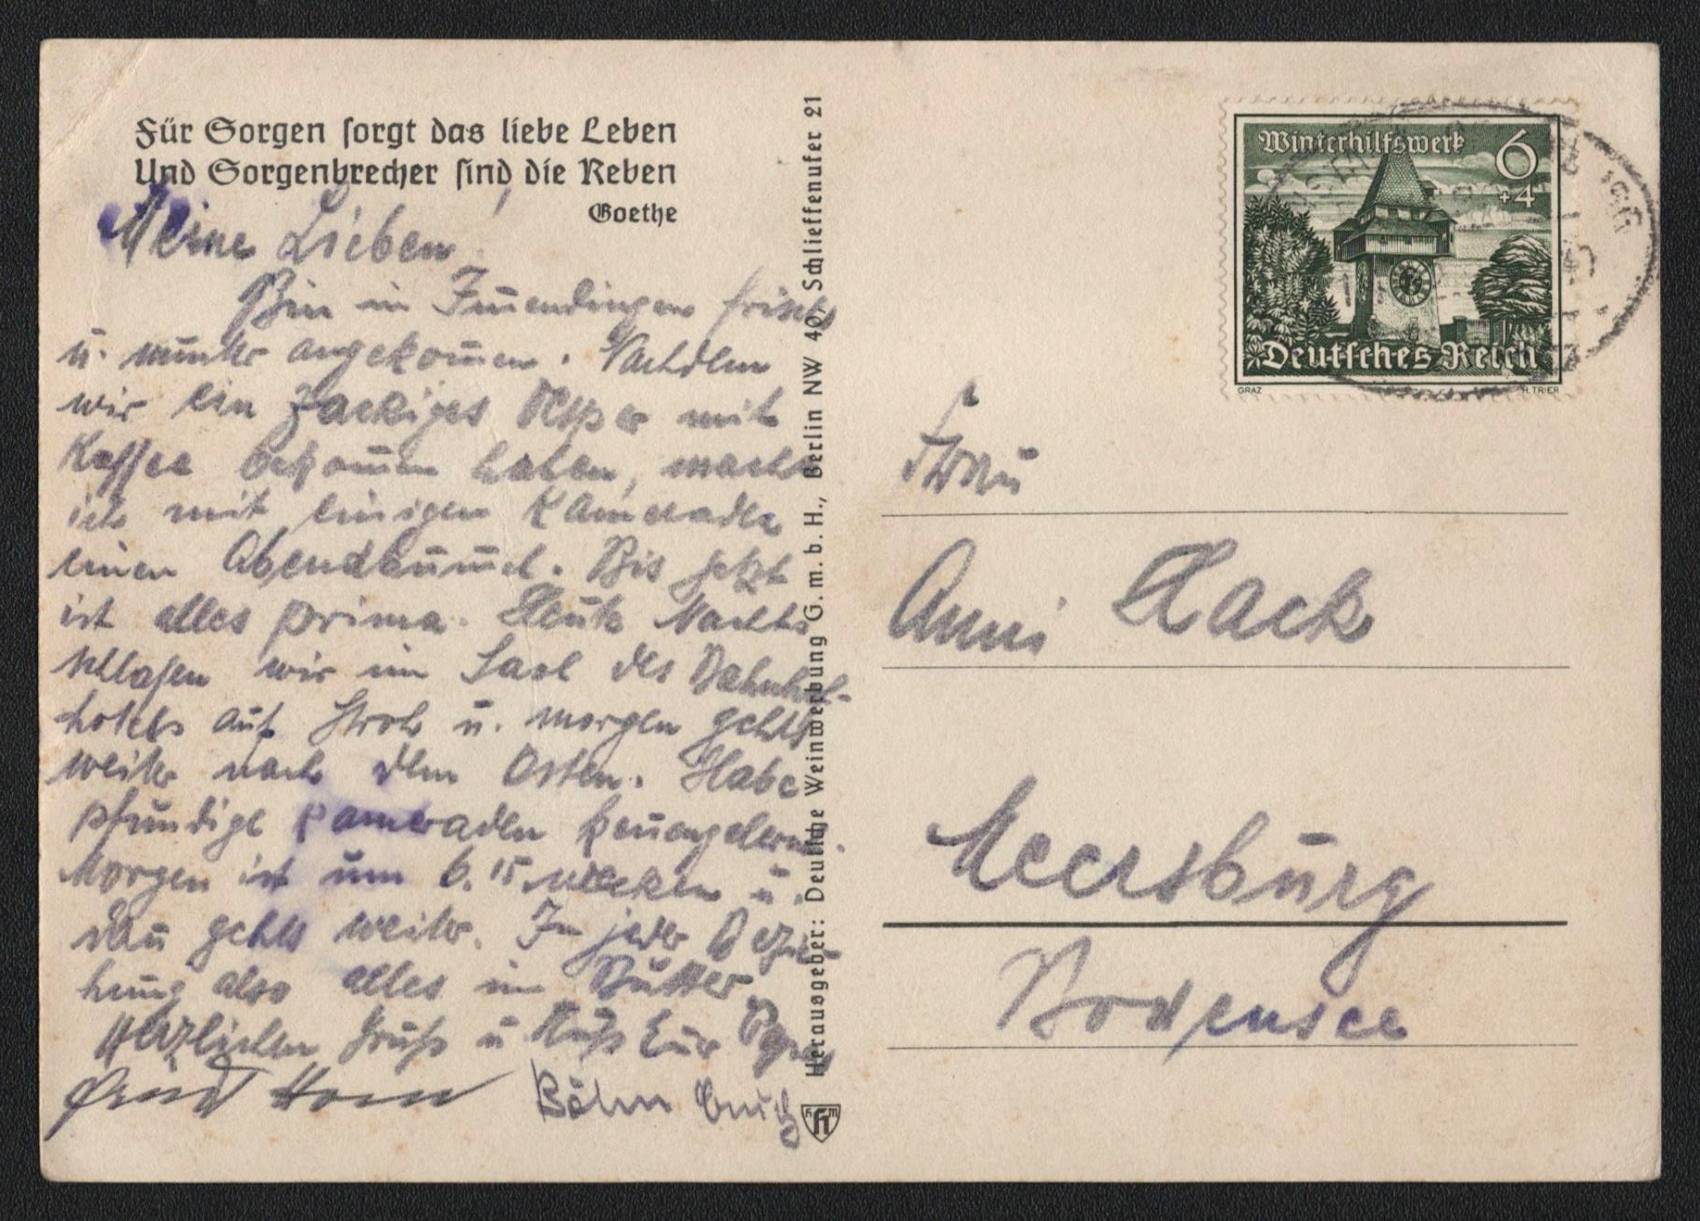 Für Sorgen sorgt das liebe Leben
Und Sorgenbrecher sind die Reben
Goethe
Meine Lieben,
Bin in Immendingen frisch
u. munter angekommen. Nachdem
wir ein zackiges Vesper mit
Kaffee bekommen haben, mache
ich mit einigen Kameraden
einen Abendbummel. Bis jetzt
ist alles prima. Heute Nacht
schlafen wir im Saal des Bahnhof-
hotels auf Stroh u. morgen gehts
weiter nach dem Osten. Habe
pfundige Kameraden kennengelernt.
Morgen ist um 6.15 wecken u.
dan gehts weiter. In jeder Bezie-
hung also alles in Butter.
Herzlichen Gruß u Kuß Euer
Horn Böhm
Herausgeber: Deutsche Weinwerbung G.m.b.H., Berlin NW 40, Schlieffenufer 21
Winterhilfswerk
6
+4
Deutsches Reich
GRAZ
H. TRIER
Frau
Anni Hack
Meersburg
Bodensee